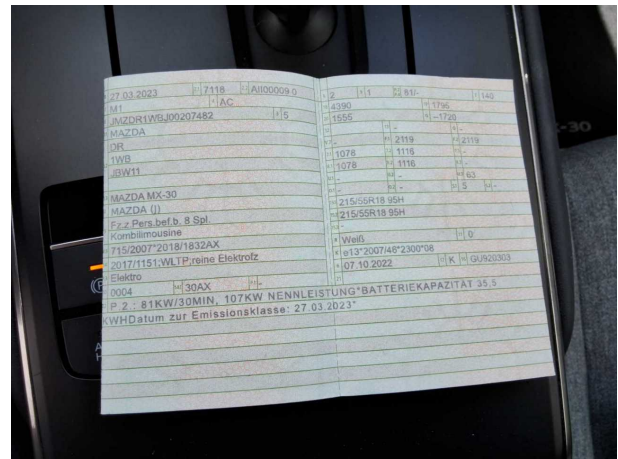 27.03.2023 7118 AII00009 0
M1 AC
JMZDR1WBJ00207482 5
MAZDA
DR
1WB
JBW11
MAZDA MX-30
MAZDA (J)
Fz.z.Pers.bef.b. 8 Spl.
Kombilimousine
715/2007*2018/1832AX
2017/1151;WLTP;reine Elektrofz
Elektro
0004 30AX -
2 1 81/- 140
4390 1795
1555 --1720
- -
- 2119 2119
1078 1116 -
1078 1116 -
- - 63
- - 5 -
215/55R18 95H
215/55R18 95H
-
Weiß 0
e13*2007/46*2300*08
07.10.2022 K GU920303
P.2.: 81KW/30MIN, 107KW NENNLEISTUNG*BATTERIEKAPAZITÄT 35,5
KWHDatum zur Emissionsklasse: 27.03.2023*
-30